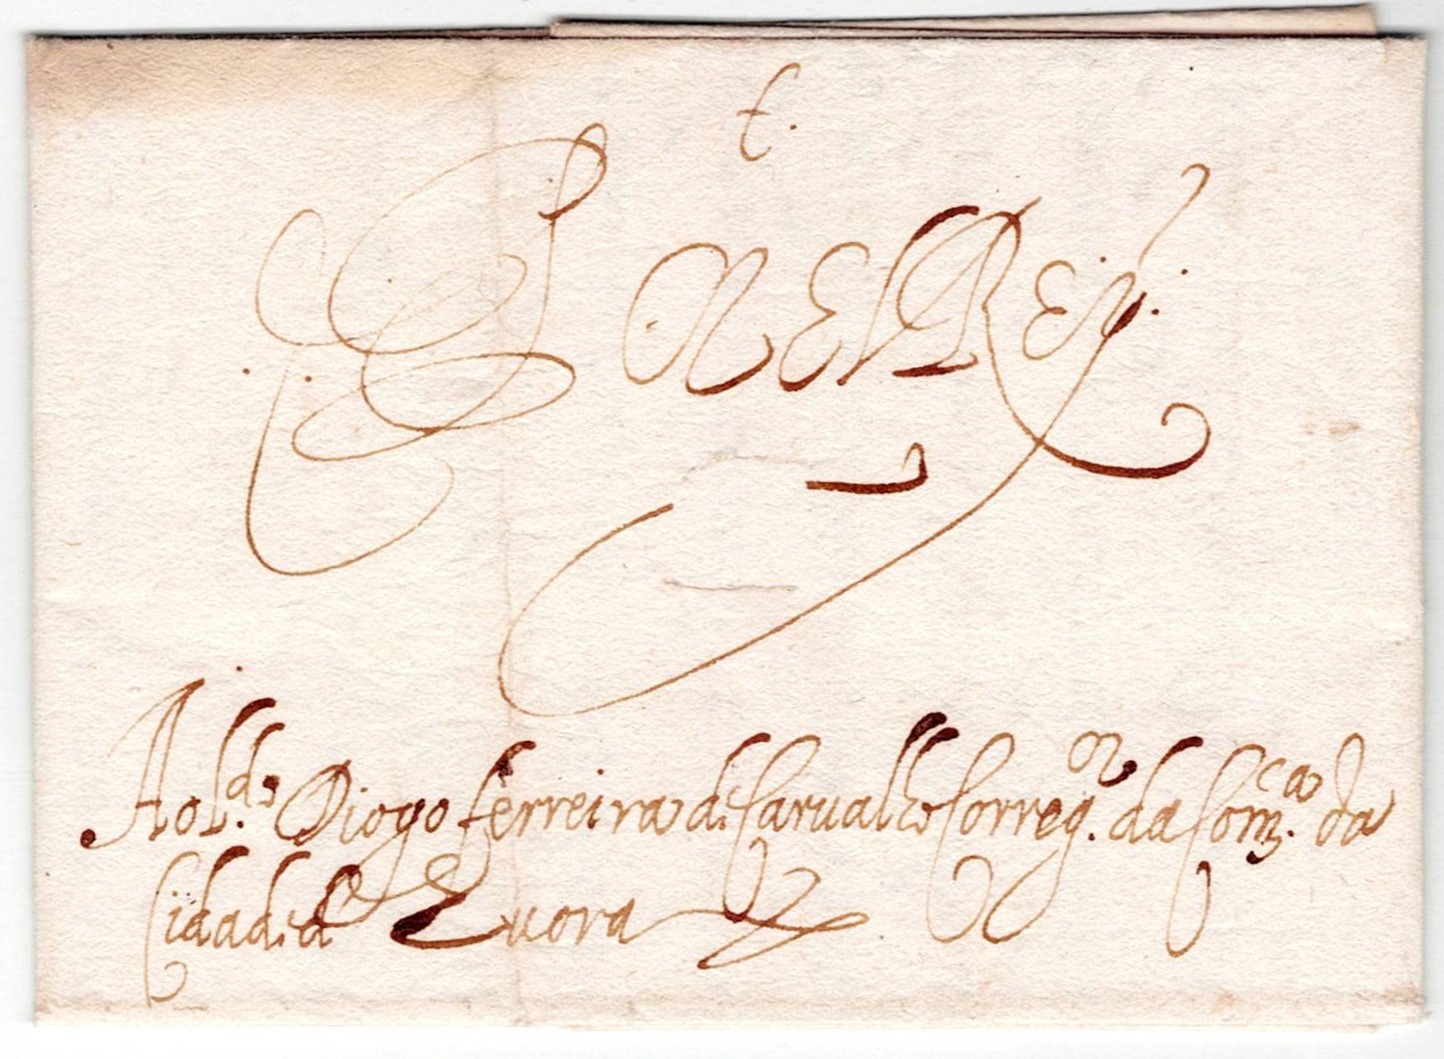 t.
Por ElRey.
Ao L.do Diogo ferreira de Carualho Correg.or da Com.ca da
Cidade de Euora